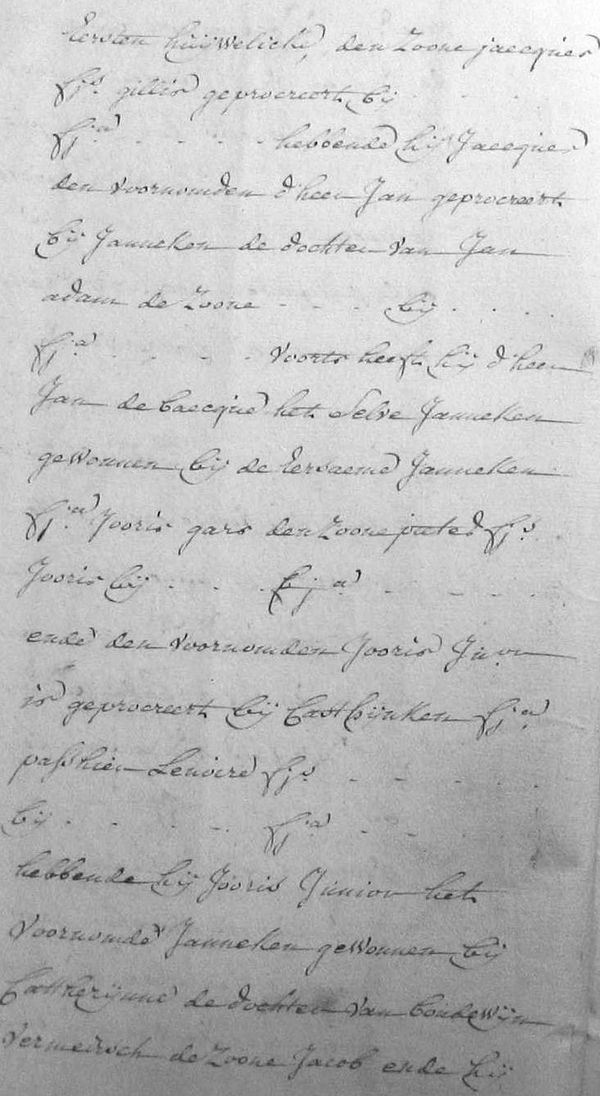 Eersten huijwelicke, den Zoone jacques
fs. gillis geprocreert bij . . . .
fa. . . . . hebbende hij Jacques
den voornomden d'heer Jan geprocreert
bij Janneken de dochter van Jan
adam de Zoone . . . bij . . . .
fa. . . . . voorts heeft hij d'heer
Jan de bacque het selve Janneken
gewonnen bij de Eersaeme Janneken
fa. Jooris gars den Zoone fs.
Jooris bij . . . fa. . . . . .
ende den voornomden Jooris Junior
is geprocreert bij Cathijnken fa.
passhier Lenoire fs. . . . . .
bij . . . . . fa. . . . .
hebbende hij Jooris Junior het
voornomde Janneken gewonnen bij
Cattherijnne de dochter van boudewijn
vermeirsch de Zoone Jacob ende hij